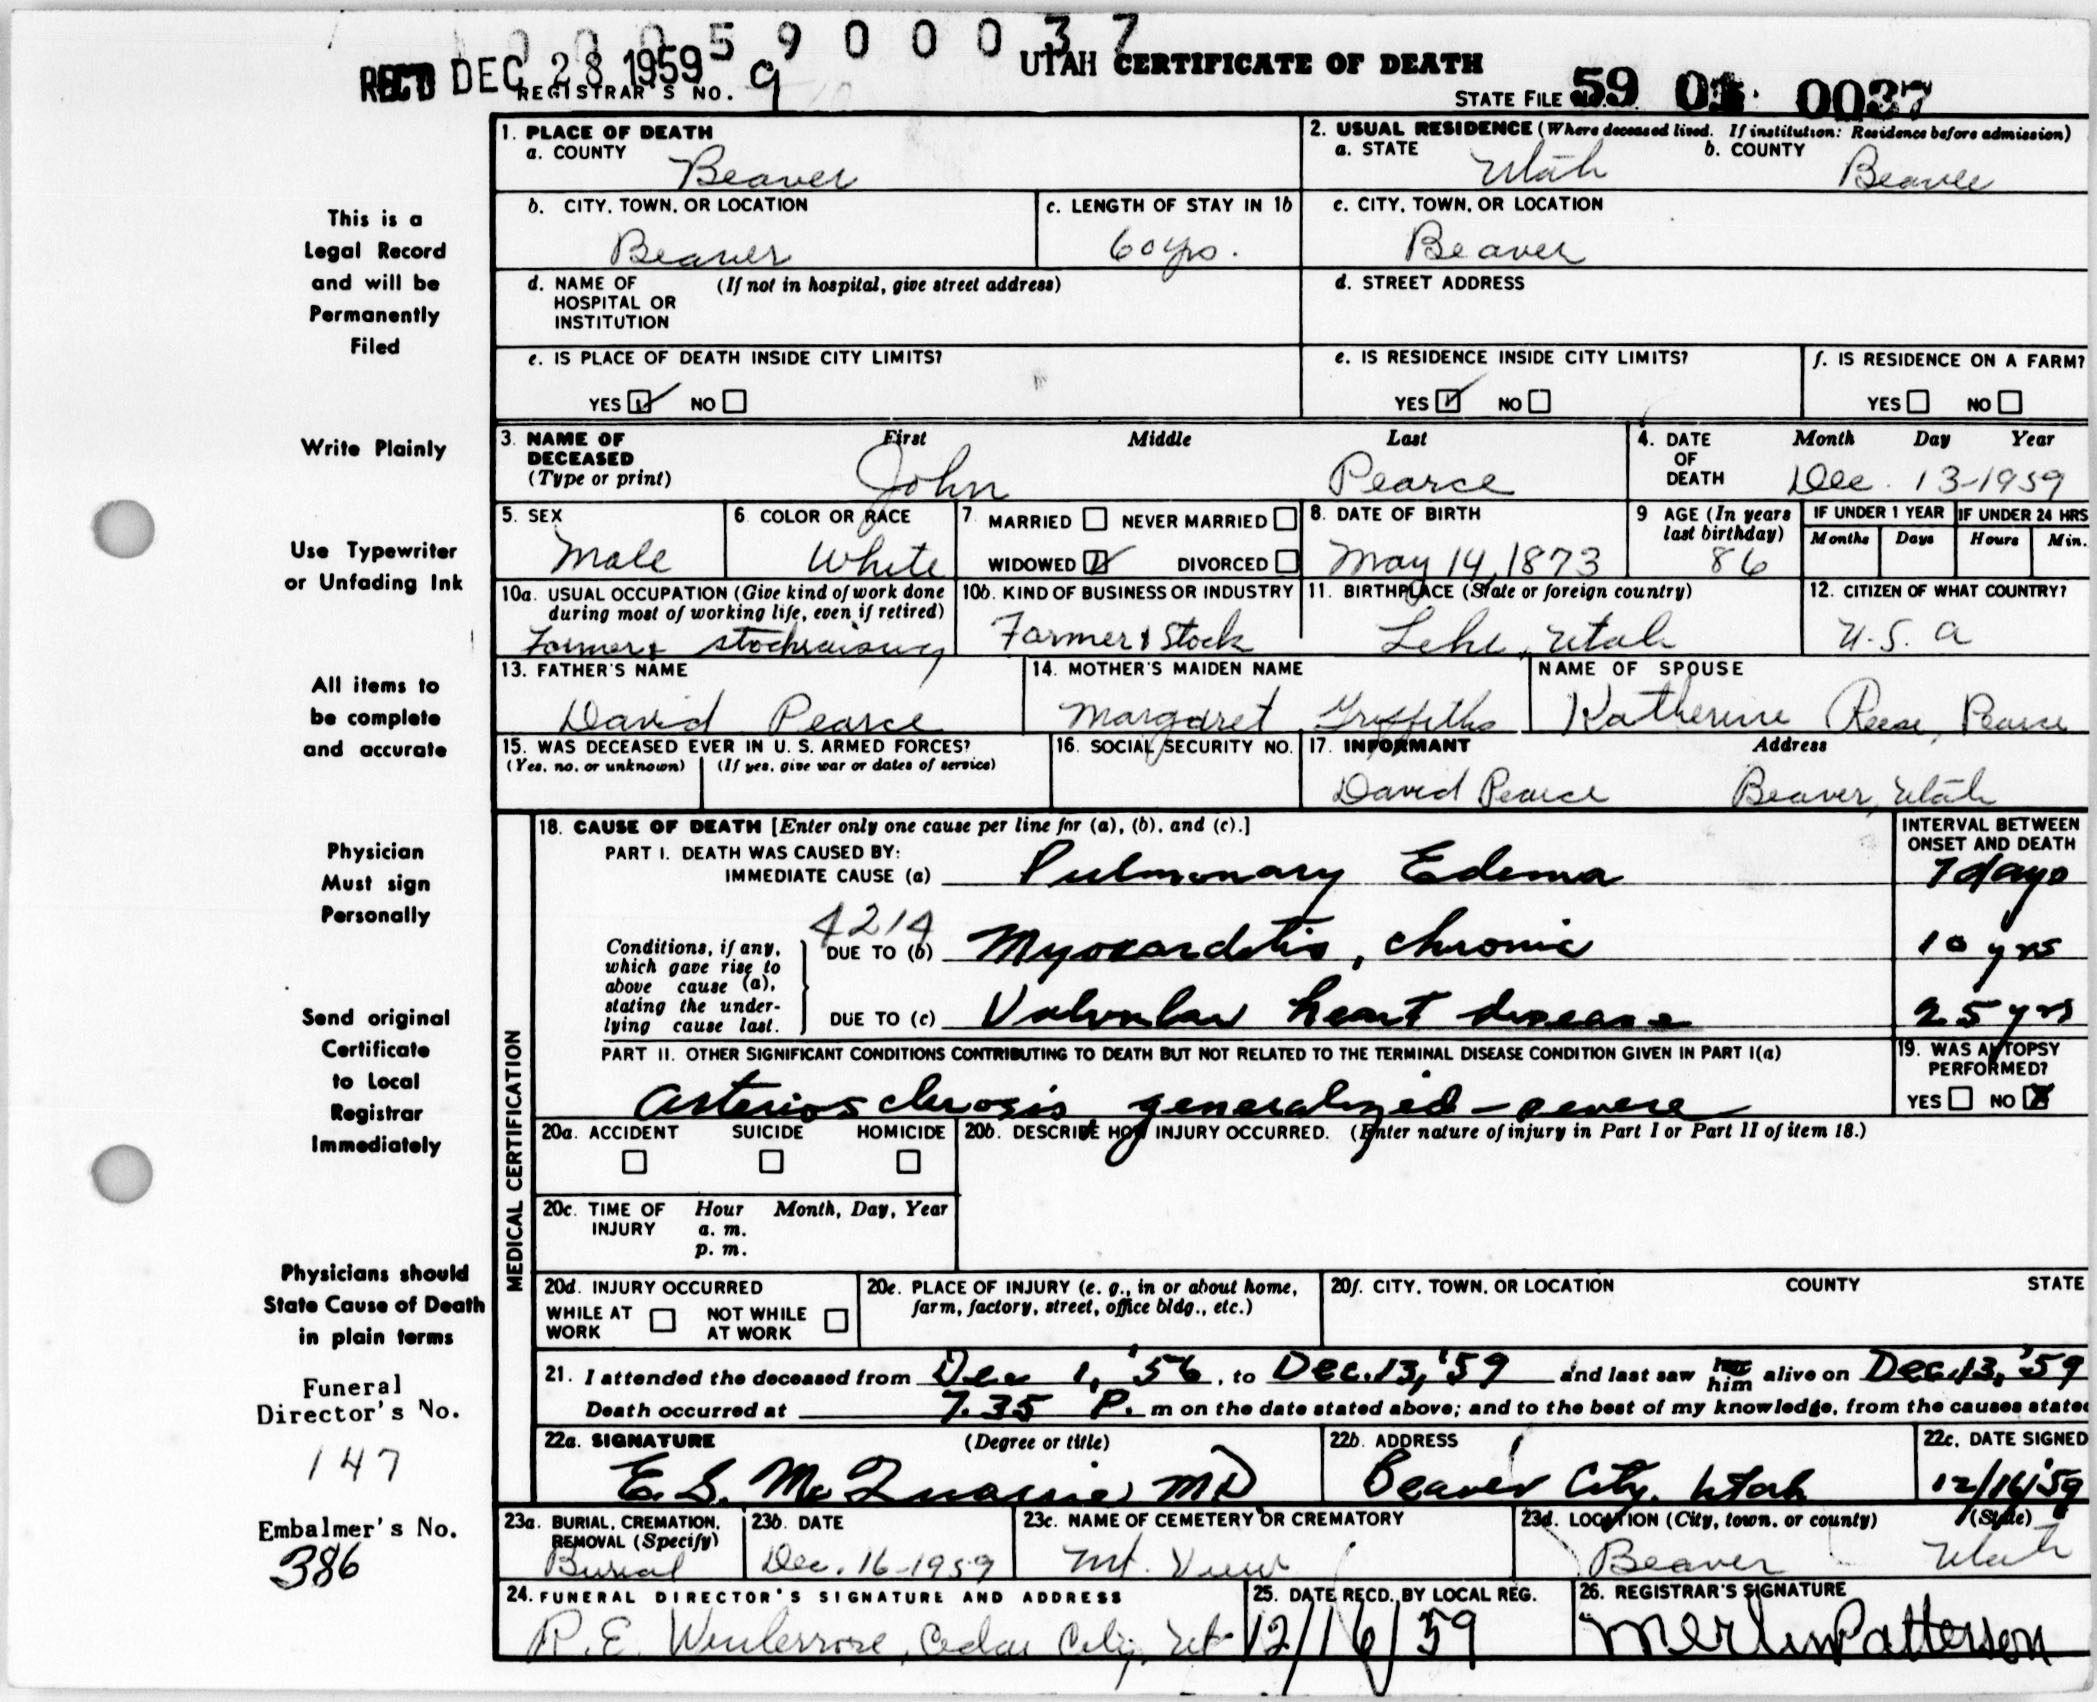 0 0 0 5 9 0 0 0 3 7
REC'D DEC 28 1959
REGISTRAR'S NO. 9
UTAH CERTIFICATE OF DEATH
STATE FILE 59 01 0037
1. PLACE OF DEATH
a. COUNTY Beaver
2. USUAL RESIDENCE (Where deceased lived. If institution: Residence before admission)
a. STATE Utah b. COUNTY Beaver
b. CITY, TOWN, OR LOCATION Beaver
c. LENGTH OF STAY IN 1b 60 yrs.
c. CITY, TOWN, OR LOCATION Beaver
d. NAME OF HOSPITAL OR INSTITUTION (If not in hospital, give street address)
d. STREET ADDRESS
e. IS PLACE OF DEATH INSIDE CITY LIMITS?
YES NO
e. IS RESIDENCE INSIDE CITY LIMITS?
YES NO
f. IS RESIDENCE ON A FARM?
YES NO
3. NAME OF DECEASED (Type or print)
First Middle Last
John Pearce
4. DATE OF DEATH Month Day Year
Dec. 13-1959
5. SEX Male
6. COLOR OR RACE White
7. MARRIED NEVER MARRIED
WIDOWED DIVORCED
8. DATE OF BIRTH May 14, 1873
9 AGE (In years last birthday) 86
IF UNDER 1 YEAR Months Days
IF UNDER 24 HRS Hours Min.
10a. USUAL OCCUPATION (Give kind of work done during most of working life, even if retired)
Farmer & stockraising
10b. KIND OF BUSINESS OR INDUSTRY
Farmer & Stock
11. BIRTHPLACE (State or foreign country)
Lehi, Utah
12. CITIZEN OF WHAT COUNTRY?
U.S.A
13. FATHER'S NAME
David Pearce
14. MOTHER'S MAIDEN NAME
Margaret Griffiths
NAME OF SPOUSE
Katherine Reese Pearce
15. WAS DECEASED EVER IN U. S. ARMED FORCES?
(Yes, no, or unknown) (If yes, give war or dates of service)
16. SOCIAL SECURITY NO.
17. INFORMANT Address
David Pearce Beaver, Utah
MEDICAL CERTIFICATION
18. CAUSE OF DEATH [Enter only one cause per line for (a), (b), and (c).]
INTERVAL BETWEEN ONSET AND DEATH
PART I. DEATH WAS CAUSED BY:
IMMEDIATE CAUSE (a) Pulmonary Edema 7 days
4214
Conditions, if any, which gave rise to above cause (a), stating the underlying cause last.
DUE TO (b) Myocarditis, chronic 10 yrs
DUE TO (c) Valvular heart disease 25 yrs
PART II. OTHER SIGNIFICANT CONDITIONS CONTRIBUTING TO DEATH BUT NOT RELATED TO THE TERMINAL DISEASE CONDITION GIVEN IN PART I(a)
Arteriosclerosis generalized - severe
19. WAS AUTOPSY PERFORMED?
YES NO
20a. ACCIDENT SUICIDE HOMICIDE
20b. DESCRIBE HOW INJURY OCCURRED. (Enter nature of injury in Part I or Part II of item 18.)
20c. TIME OF INJURY Hour Month, Day, Year
a. m.
p. m.
20d. INJURY OCCURRED
WHILE AT WORK NOT WHILE AT WORK
20e. PLACE OF INJURY (e. g., in or about home, farm, factory, street, office bldg., etc.)
20f. CITY, TOWN, OR LOCATION COUNTY STATE
21. I attended the deceased from Dec 1, '56, to Dec. 13, '59 and last saw him alive on Dec. 13, '59
Death occurred at 7.35 P. m on the date stated above; and to the best of my knowledge, from the causes stated
22a. SIGNATURE (Degree or title)
E. S. McQuarrie MD
22b. ADDRESS
Beaver City, Utah
22c. DATE SIGNED
12/16/59
23a. BURIAL, CREMATION, REMOVAL (Specify)
Burial
23b. DATE
Dec. 16-1959
23c. NAME OF CEMETERY OR CREMATORY
Mt. View
23d. LOCATION (City, town, or county) (State)
Beaver Utah
24. FUNERAL DIRECTOR'S SIGNATURE AND ADDRESS
R.E. Winterrose, Cedar City, Ut
25. DATE RECD. BY LOCAL REG.
12/16/59
26. REGISTRAR'S SIGNATURE
Merlin Patterson
This is a
Legal Record
and will be
Permanently
Filed
Write Plainly
Use Typewriter
or Unfading Ink
All items to
be complete
and accurate
Physician
Must sign
Personally
Send original
Certificate
to Local
Registrar
Immediately
Physicians should
State Cause of Death
in plain terms
Funeral
Director's No.
147
Embalmer's No.
386